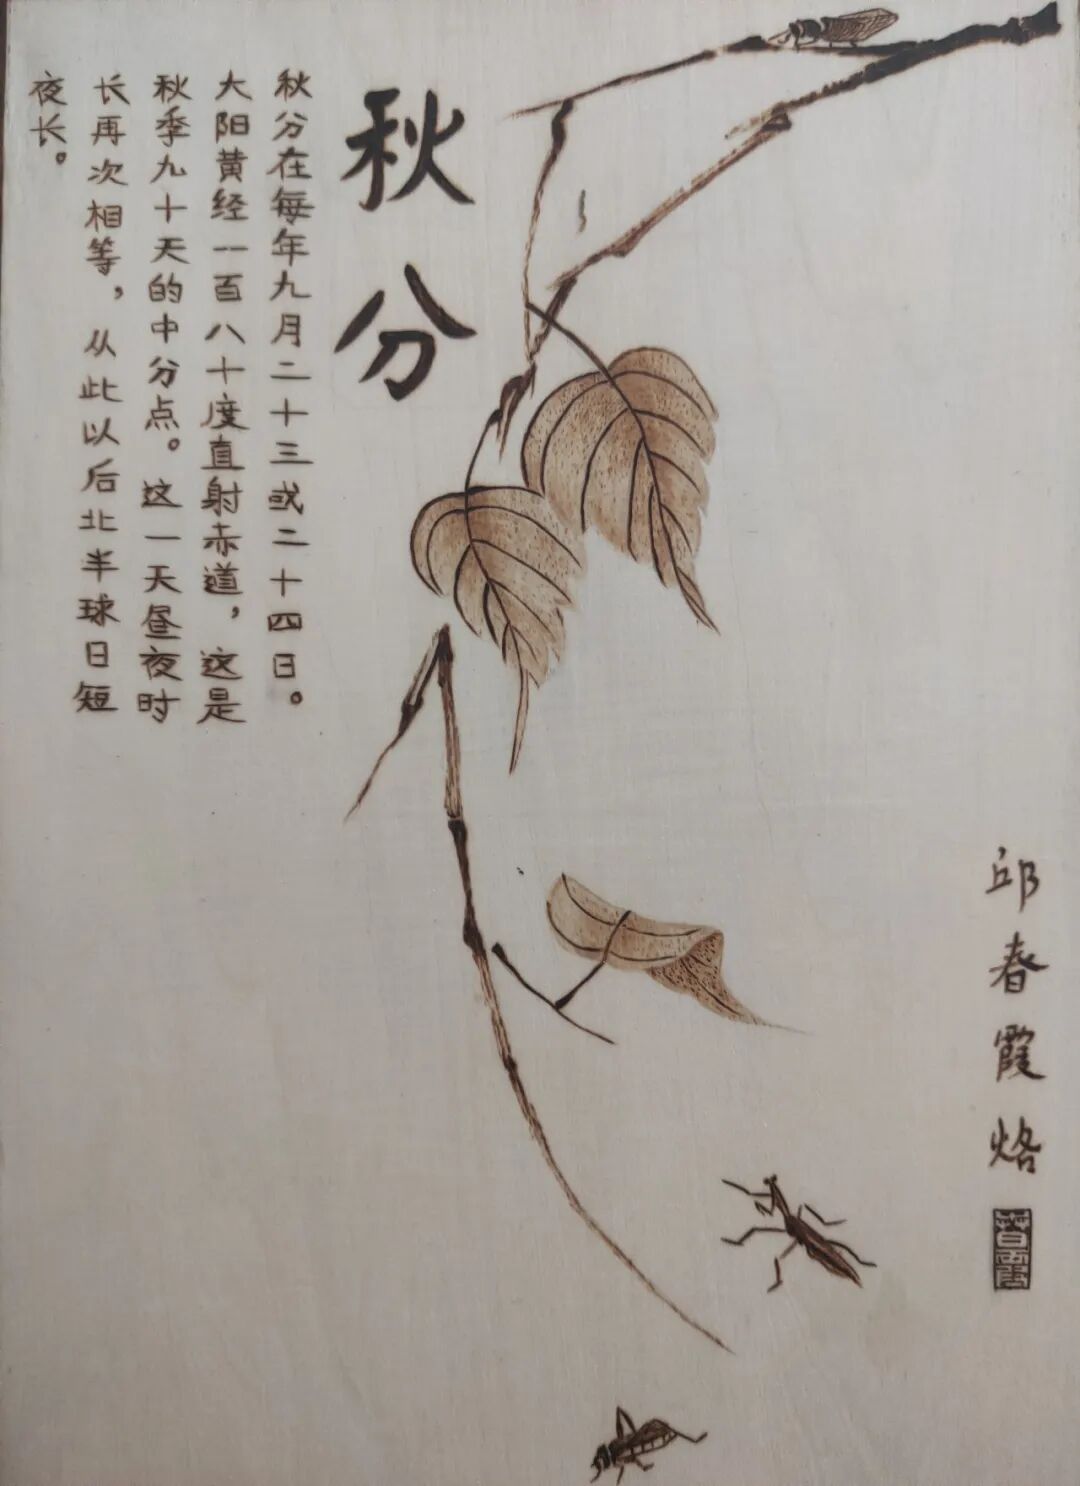 秋分
秋分在每年九月二十三或二十四日。
大阳黄经一百八十度直射赤道，这是
秋季九十天的中分点。这一天昼夜时
长再次相等，从此以后北半球日短
夜长。
邱春霞烙